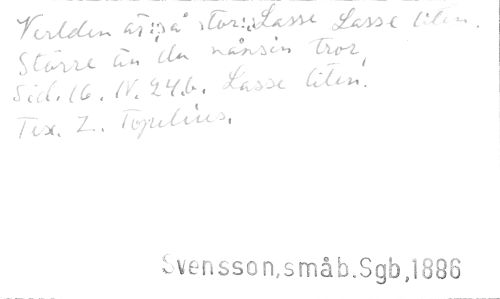 Verlden är :så stor:, Lasse Lasse liten.
Större än du nånsin tror,
Sid. 16. N. 24.b. Lasse liten.
Tex. Z. Topelius.
Svensson,småb.Sgb,1886